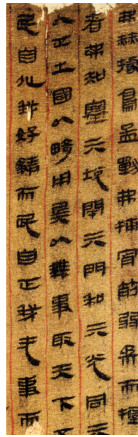 弗赫據鳥孟獸弗捕骨筋弱柔而握
者弗知塞亓㙂閉亓門和亓光同亓
以正之國以畸用兵以無事取天下
民自化我好靜而民自正我无事而